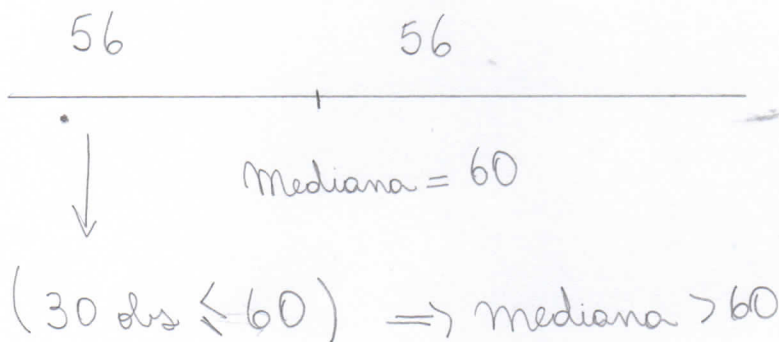 56 56
Mediana = 60
(30 obs ≤ 60) => mediana > 60